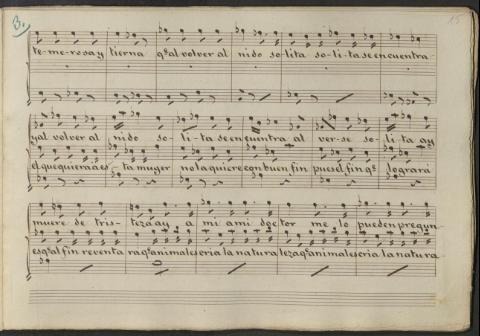 3.
15
te-me-rosa y tierna qᵉ al volver al nido so-lita so-li-ta se encuentra
y al volver al nido so-li-ta se encuentra al ver-se so-li-ta ay
el que quiera a es-ta muger no la quiere con buen fin pues el fin qᵉ lograra
muere de tris-teza ay a mi ami doctor me lo pueden pregun-
es qᵉ al fin reventa ra qᵉ animales cria la naturaleza qᵉ animales cria la natura